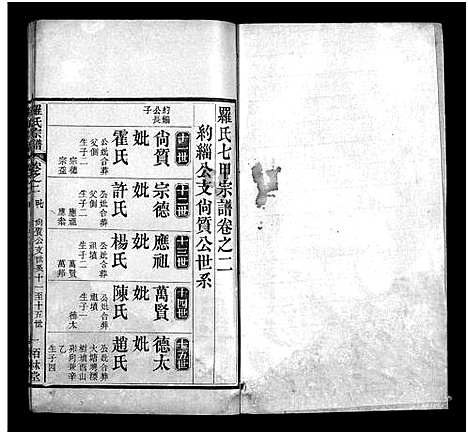 羅氏七甲宗譜卷之二
約緇公支尚質公世系
約緇公長子
十一世
尚質
妣霍氏
公妣合葬
父側
生子二
宗德
宗盃
十二世
宗德
妣許氏
公妣合葬
父側
生子二
應祖
應宗
十三世
應祖
妣楊氏
公妣合葬
祖墳
生子二
萬賢
萬邦
十四世
萬賢
妣陳氏
公妣合葬
祖墳
生子一
德太
十五世
德太
妣趙氏
公妣合葬
生子四
羅氏宗譜
卷之二
尚質公支世系十一至十五世
一
百林堂